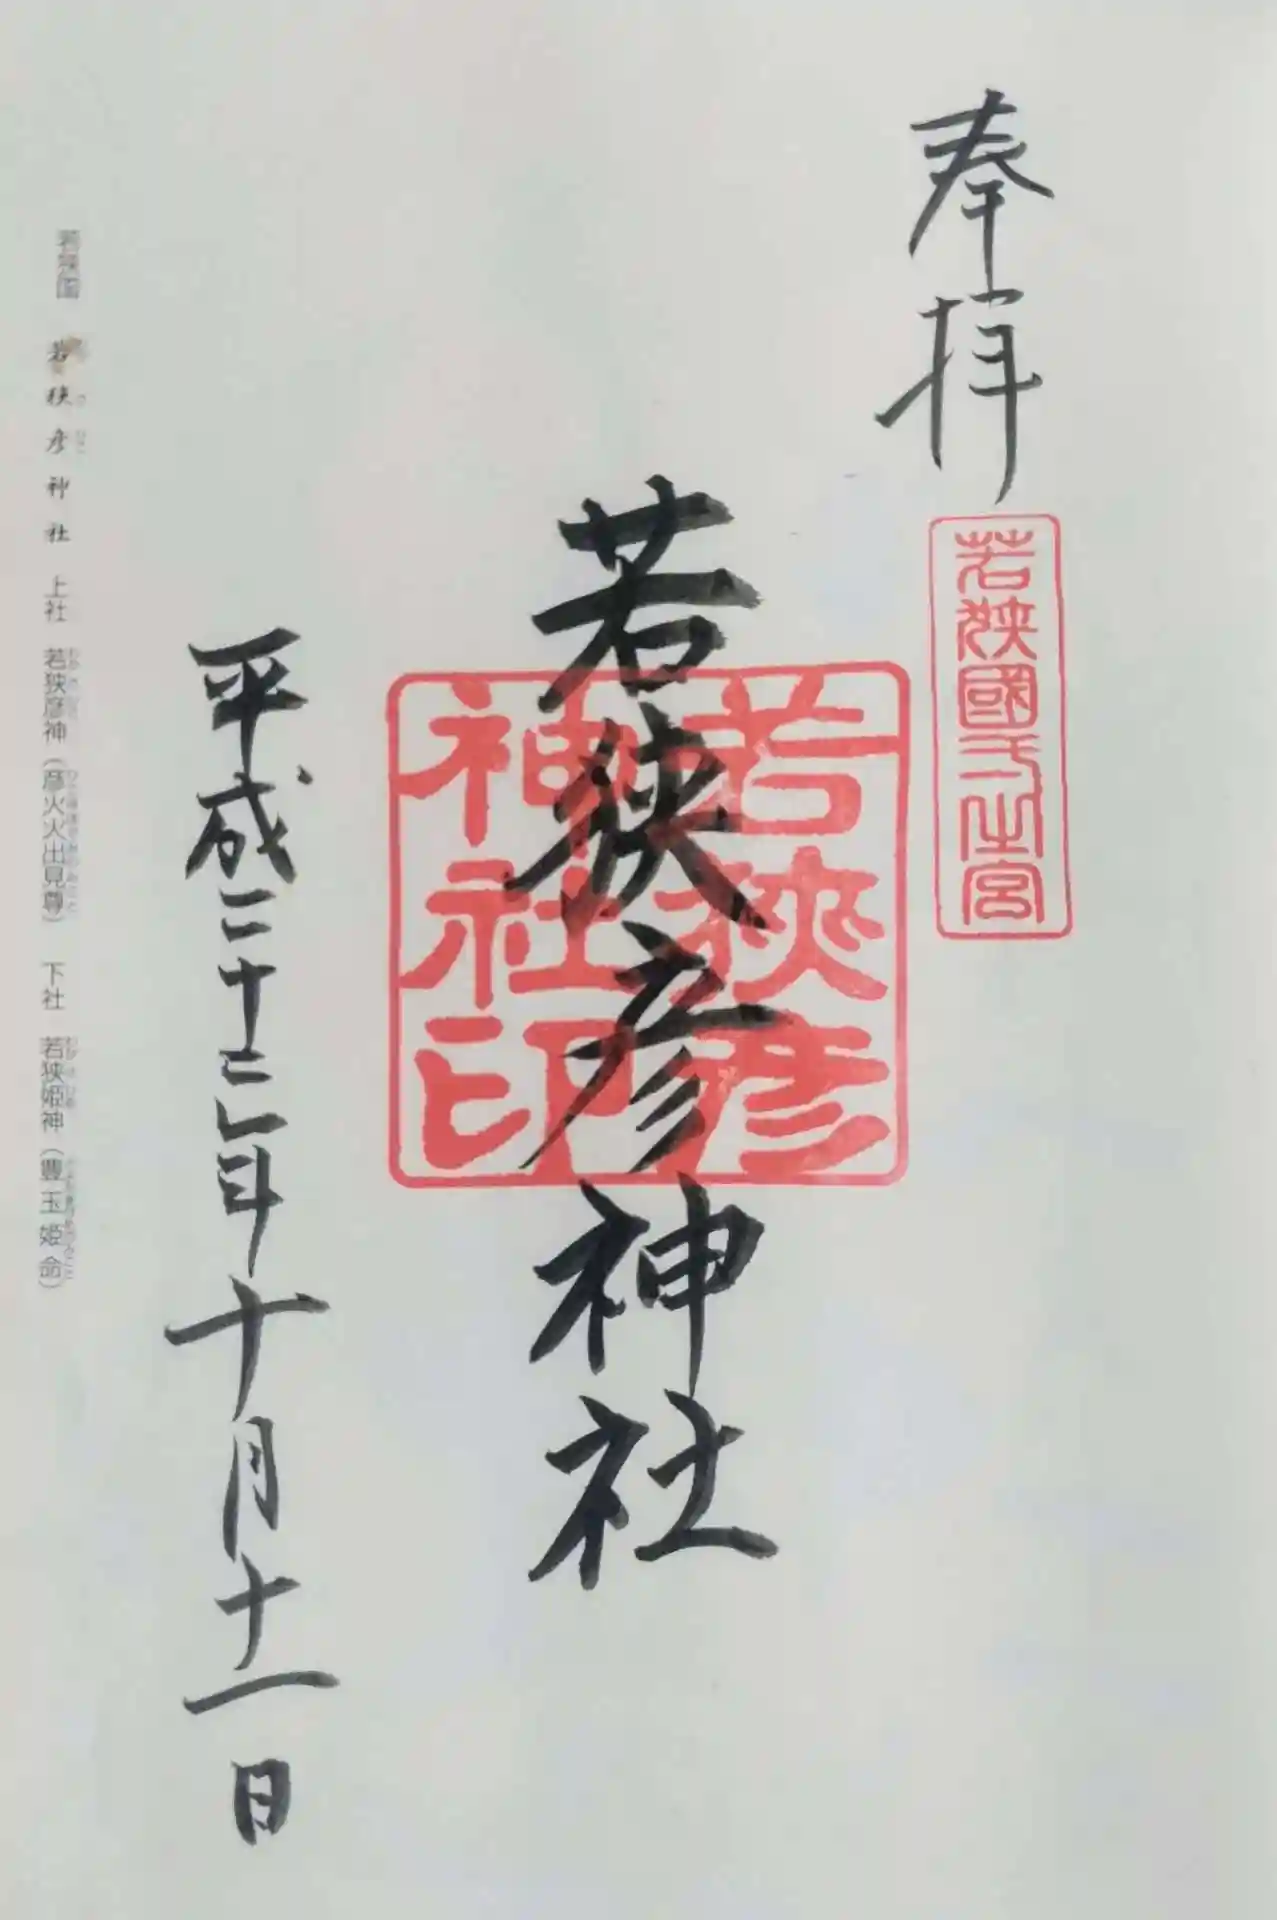 奉拝
若狭國一之宮
若狭彦神社
若狭彦
神社印
平成二十二年十月十一日
若狭国 若狭彦神社 上社 若狭彦神（彦火火出見尊） 下社 若狭姫神（豊玉姫命）